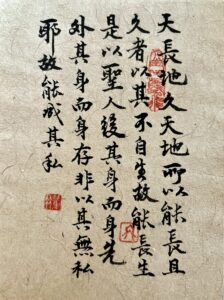 天長地久天地所以能長且
久者以其不自生故能長生
是以聖人後其身而身先
外其身而身存非以其無私
耶故能成其私